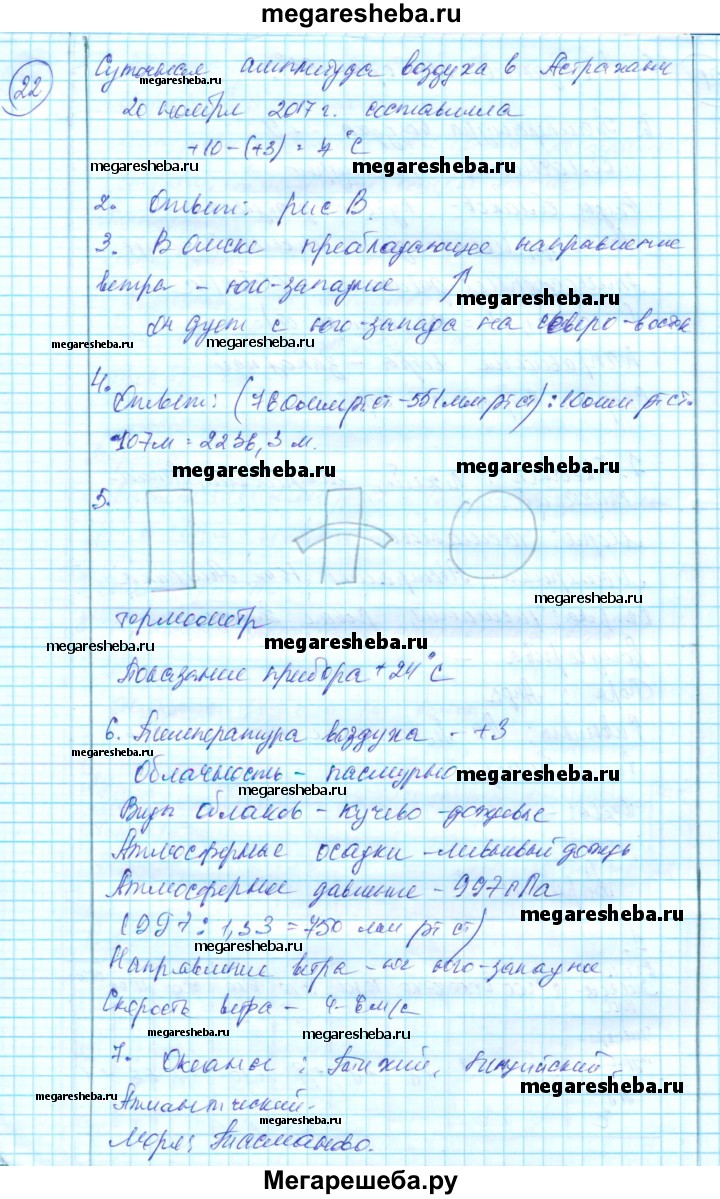 megaresheba.ru
22
Суточная амплитуда воздуха в Астрахани
20 ноября 2017 г. составила
+10-(+3) = 7°С
megaresheba.ru megaresheba.ru
2. Ответ: рис В.
3. В Омске преобладающее направление
ветра - юго-западное
megaresheba.ru
Он дует с юго-запада на северо-восток
megaresheba.ru megaresheba.ru
4.
Ответ: (760мм рт ст - 551мм рт ст) : 100мм рт ст.
107м = 2236,3 м.
megaresheba.ru megaresheba.ru
5.
megaresheba.ru
термометр
megaresheba.ru megaresheba.ru
Показание прибора +24°С
6. Температура воздуха - +3
megaresheba.ru
Облачность - пасмурно
megaresheba.ru
megaresheba.ru
Виды облаков - кучево-дождевые
Атмосферные осадки - ливневый дождь
Атмосферное давление - 997гПа
megaresheba.ru
(997 : 1,33 = 750 мм рт ст)
megaresheba.ru
Направление ветра - юго-западное.
Скорость ветра - 4-6м/с
megaresheba.ru megaresheba.ru
7. Океаны: Тихий, Индийский
megaresheba.ru
megaresheba.ru
Атлантический.
megaresheba.ru megaresheba.ru
Моря: Тасманово.
Мегарешеба.ру